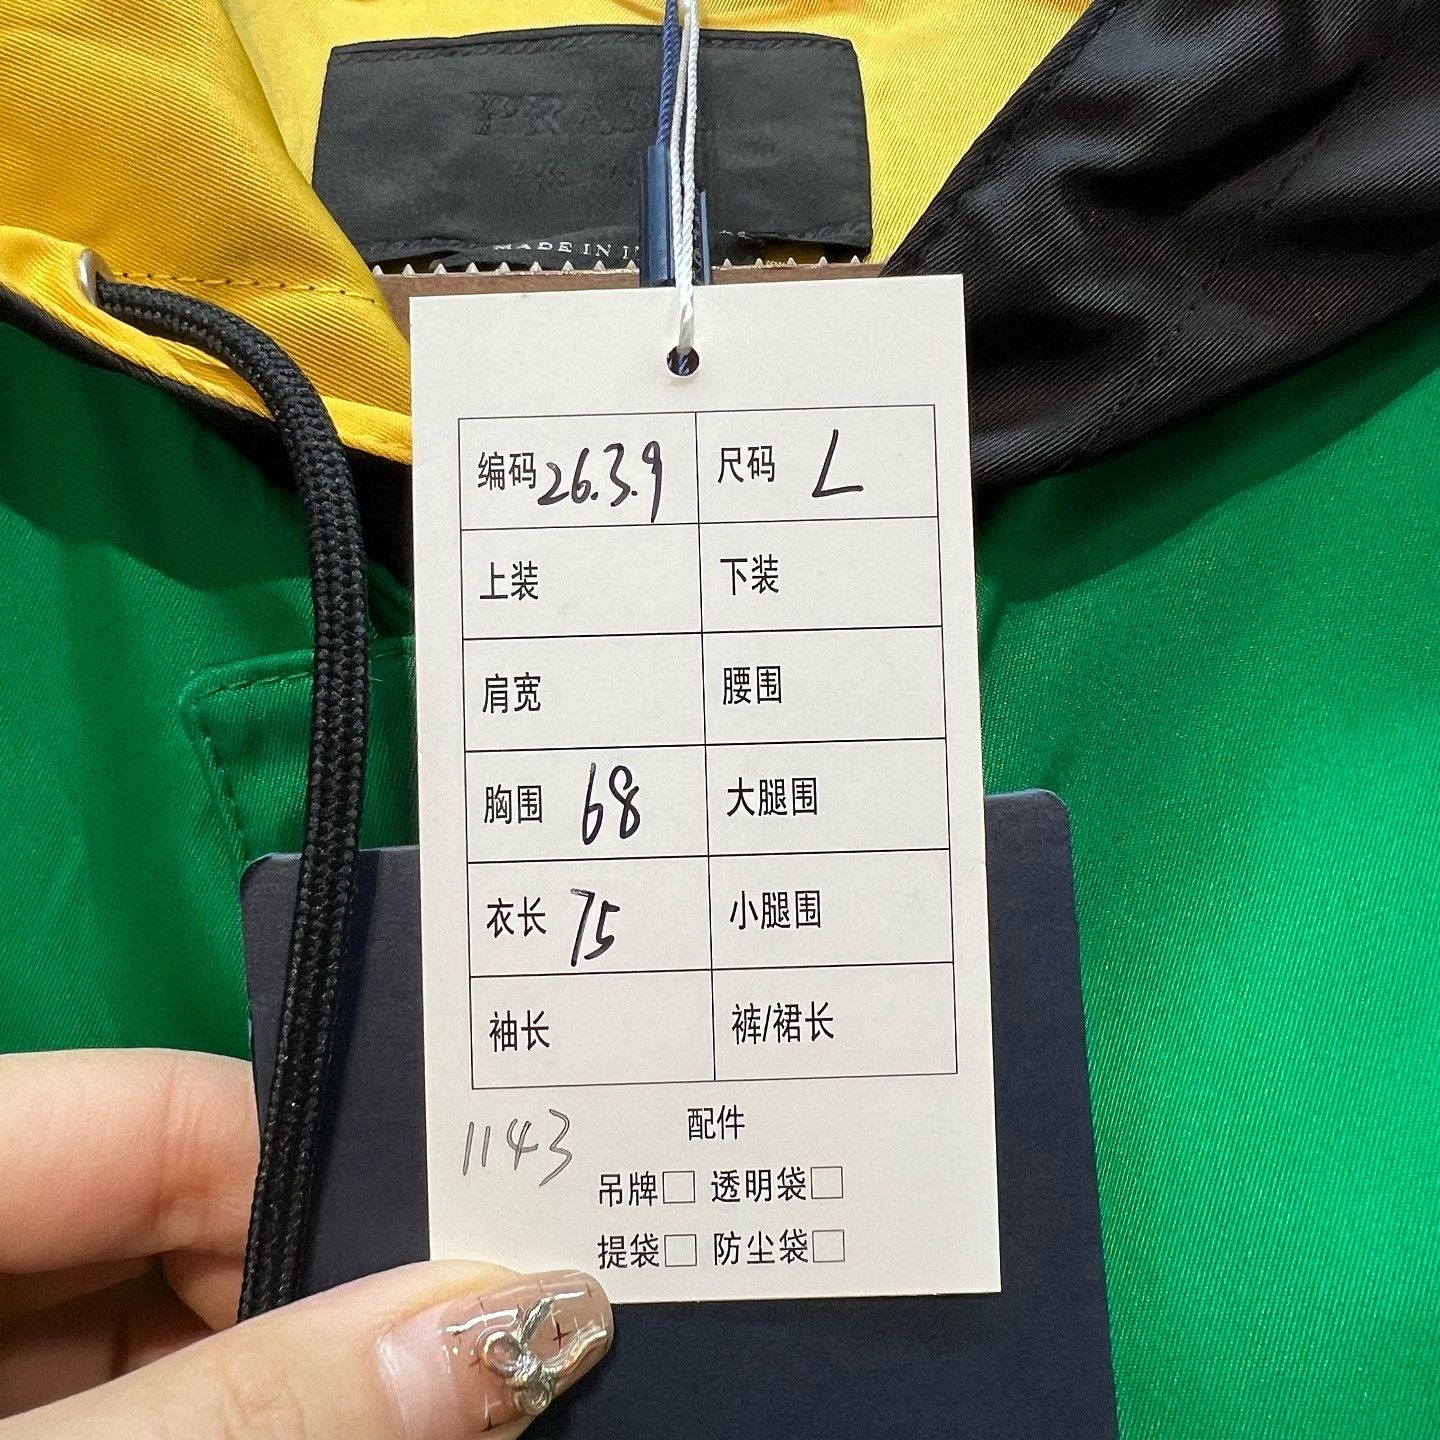 PRADA
MADE IN
编码 26.3.9 尺码 L
上装 下装
肩宽 腰围
胸围 68 大腿围
衣长 75 小腿围
袖长 裤/裙长
1143 配件
吊牌□ 透明袋□
提袋□ 防尘袋□